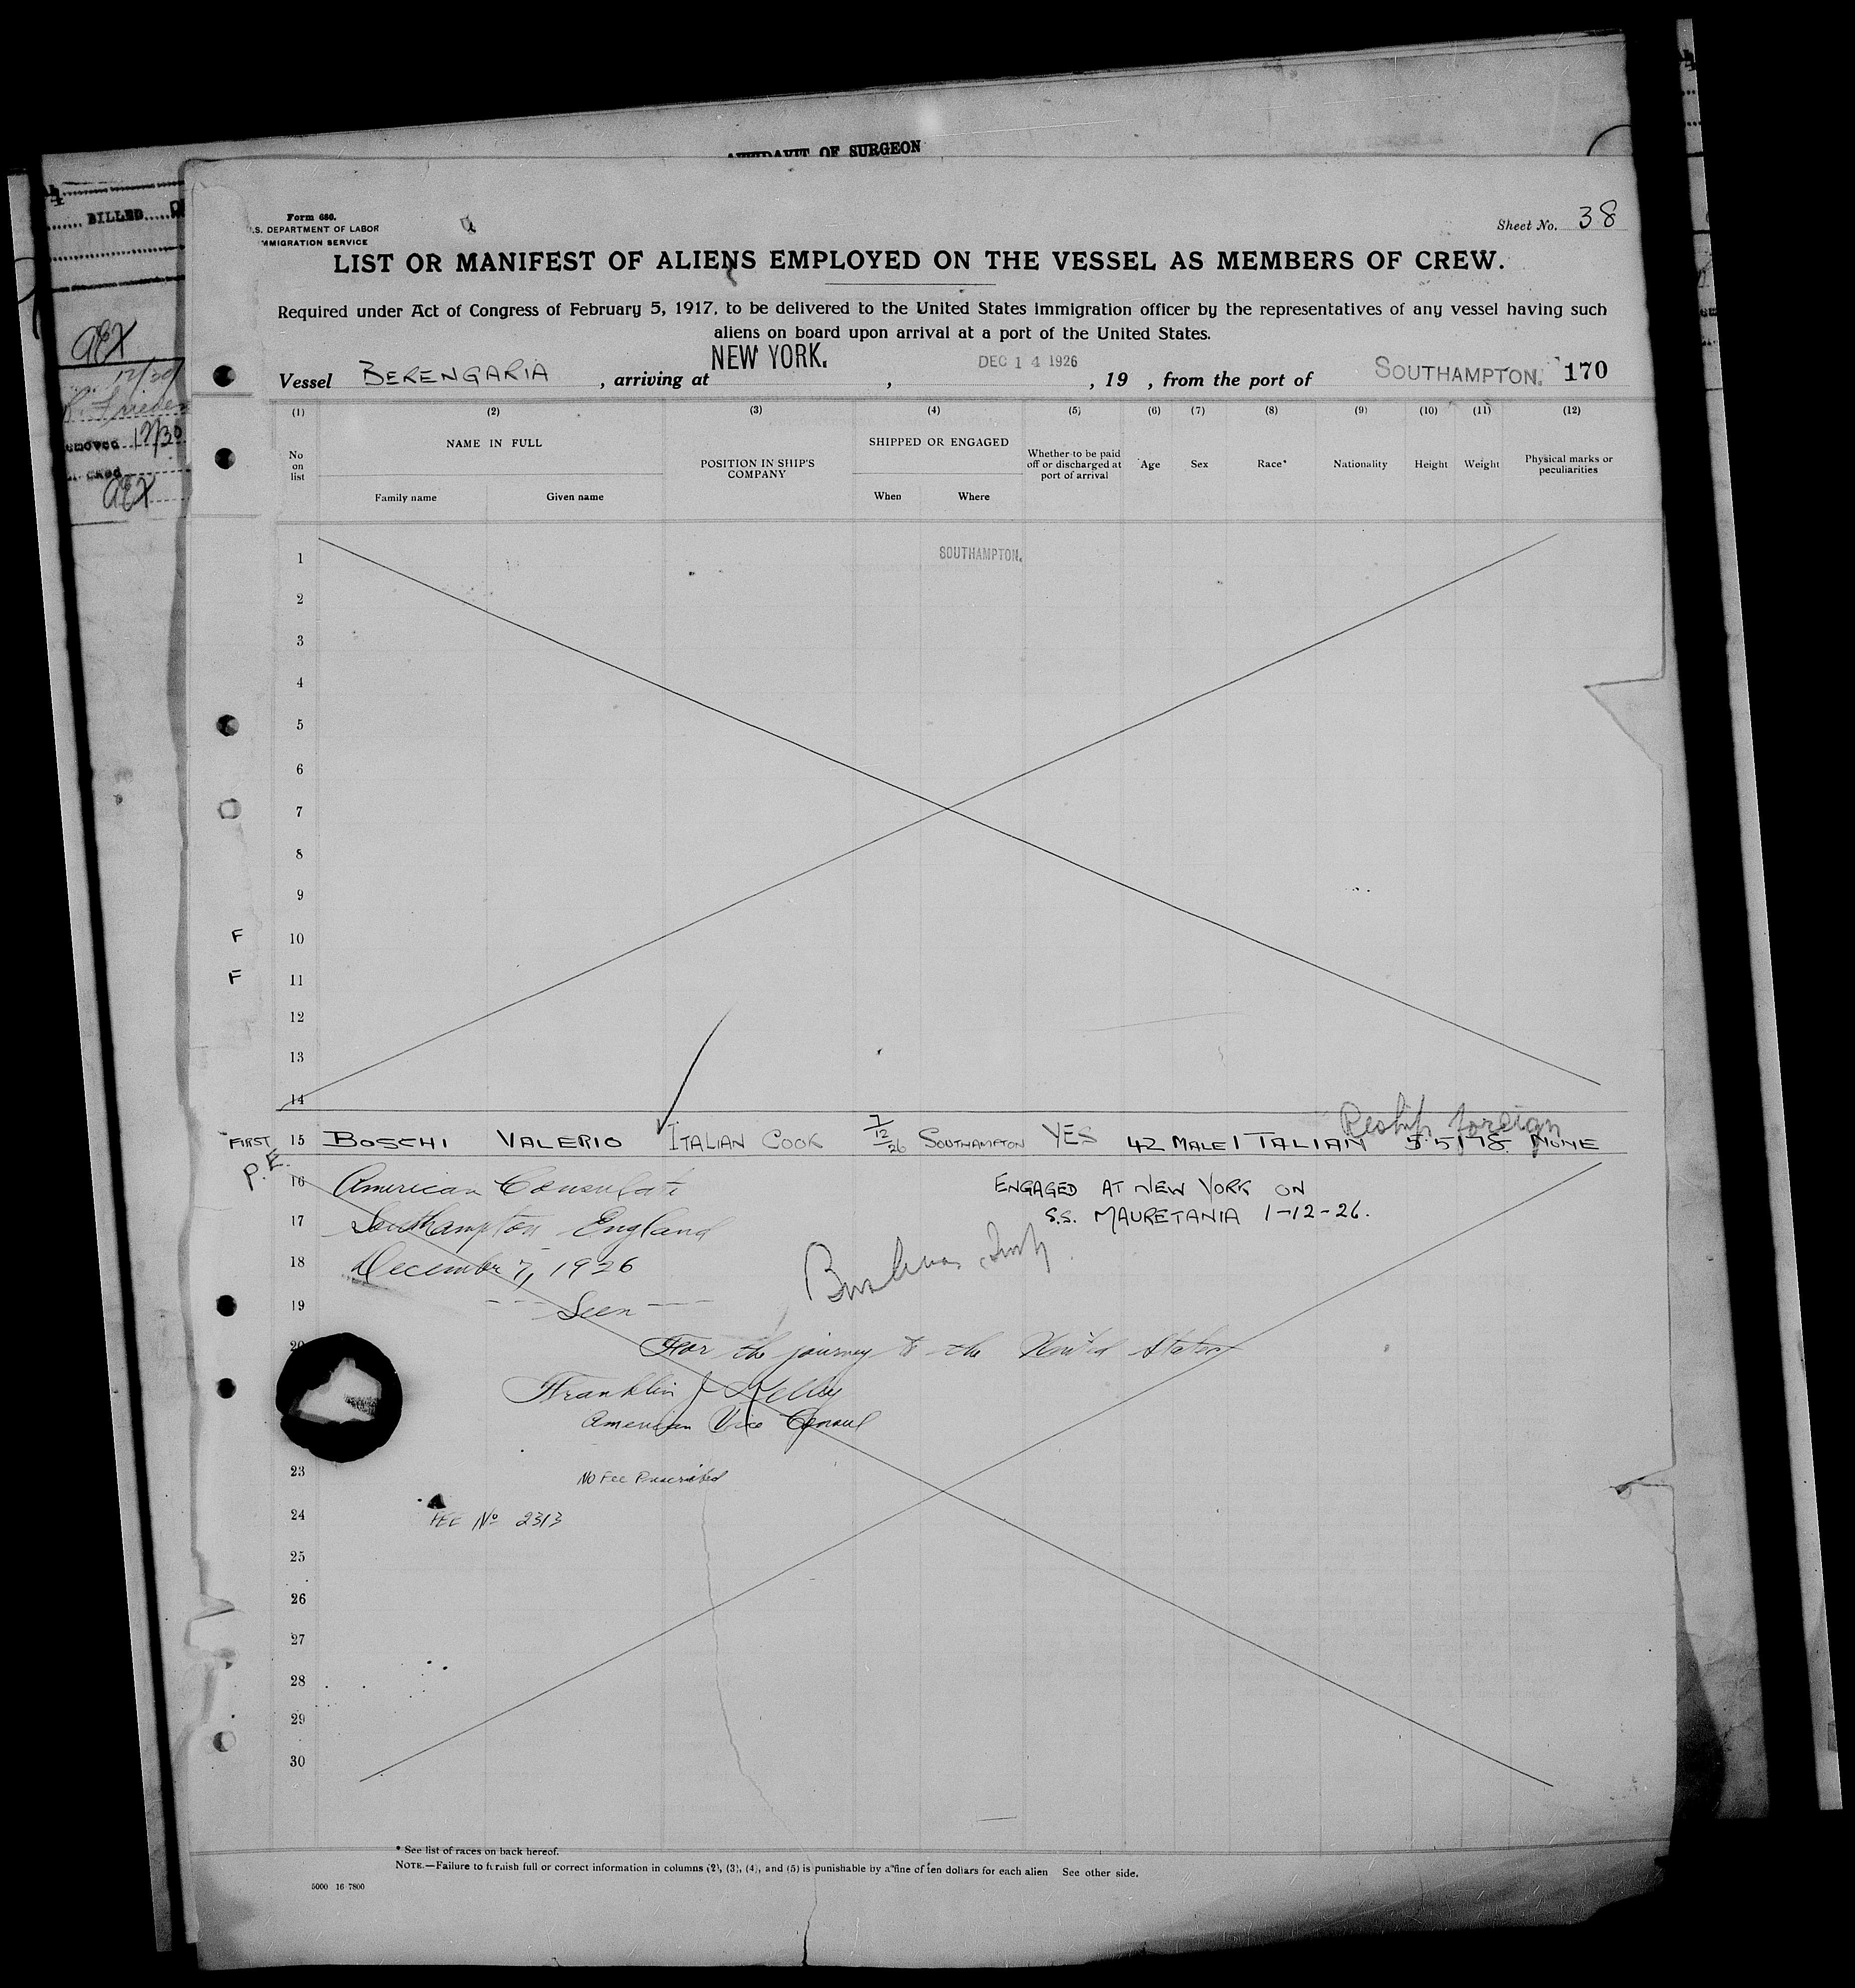 OF SURGEON
BILLED
Form 680.
U.S. DEPARTMENT OF LABOR
IMMIGRATION SERVICE
Sheet No. 38
LIST OR MANIFEST OF ALIENS EMPLOYED ON THE VESSEL AS MEMBERS OF CREW.
Required under Act of Congress of February 5, 1917, to be delivered to the United States immigration officer by the representatives of any vessel having such
aliens on board upon arrival at a port of the United States.
Vessel BERENGARIA , arriving at NEW YORK. , DEC 14 1926 , 19 , from the port of SOUTHAMPTON. 170
(1) (2) (3) (4) (5) (6) (7) (8) (9) (10) (11) (12)
No on list NAME IN FULL POSITION IN SHIP'S COMPANY SHIPPED OR ENGAGED Whether to be paid off or discharged at port of arrival Age Sex Race* Nationality Height Weight Physical marks or peculiarities
Family name Given name When Where
1 SOUTHAMPTON.
2
3
4
5
6
7
8
9
F 10
F 11
12
13
14
Reship foreign
FIRST 15 BOSCHI VALERIO ITALIAN COOK 7/12/26 SOUTHAMPTON YES 42 MALE ITALIAN 5.5 178. NONE
P.E.
16 American Consulate ENGAGED AT NEW YORK ON
17 Southampton England S.S. MAURETANIA 1-12-26.
18 December 7, 1926
19 --- Seen ---
20 For the journey to the United States
Franklin J Kelley
American Vice Consul
23 No Fee Prescribed
24 FEE No 2313
25
26
27
28
29
30
* See list of races on back hereof.
NOTE.—Failure to furnish full or correct information in columns (2), (3), (4), and (5) is punishable by a fine of ten dollars for each alien See other side.
5000 16-7800